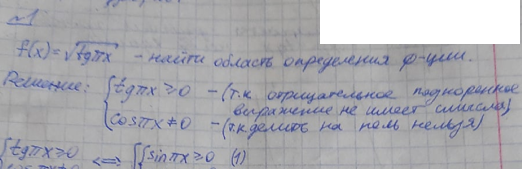 №1
f(x)=√tgπx - найти область определения ф-ции.
Решение: { tgπx ≥ 0 - (т.к. отрицательное подкоренное
выражение не имеет смысла)
cosπx ≠ 0 - (т.к. делить на ноль нельзя)
{ tgπx ≥ 0 <=> [ { sinπx ≥ 0 (1)
cosπx ≠ 0